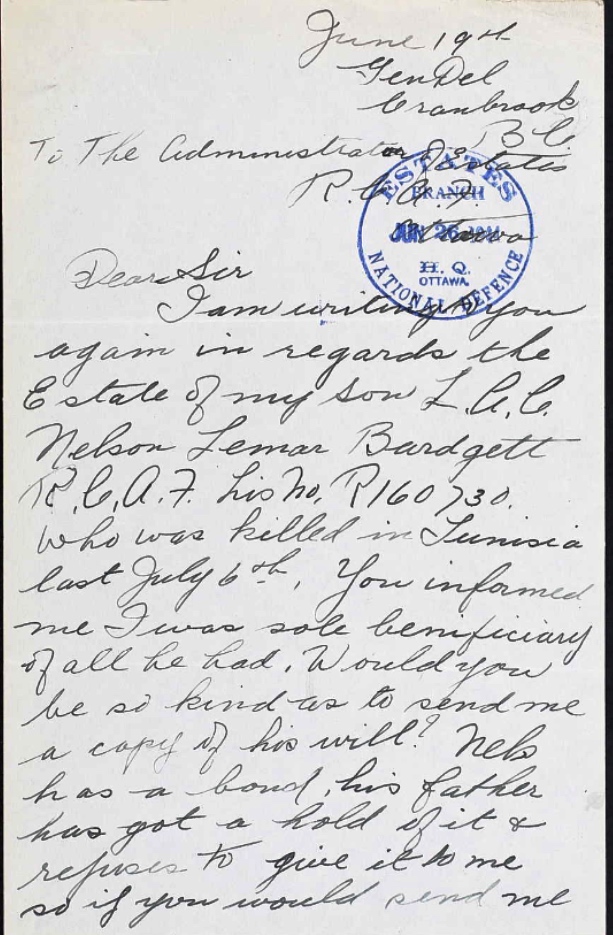 June 19th
Gen Del
Cranbrook
B C.
To The Administrator of Estates
R.C.A.F.
Ottawa
ESTATES
BRANCH
JUN 26 1944
H. Q.
OTTAWA.
NATIONAL DEFENCE
Dear Sir
I am writing to you
again in regards the
Estate of my son L.A.C.
Nelson Lemar Bardgett
R.C.A.F. his No, R160730.
Who was killed in Tunisia
last July 6th, You informed
me I was sole benificiary
of all he had. Would you
be so kind as to send me
a copy of his will? Nels
has a bond, his father
has got a hold of it &
refuses to give it to me
so if you would send me